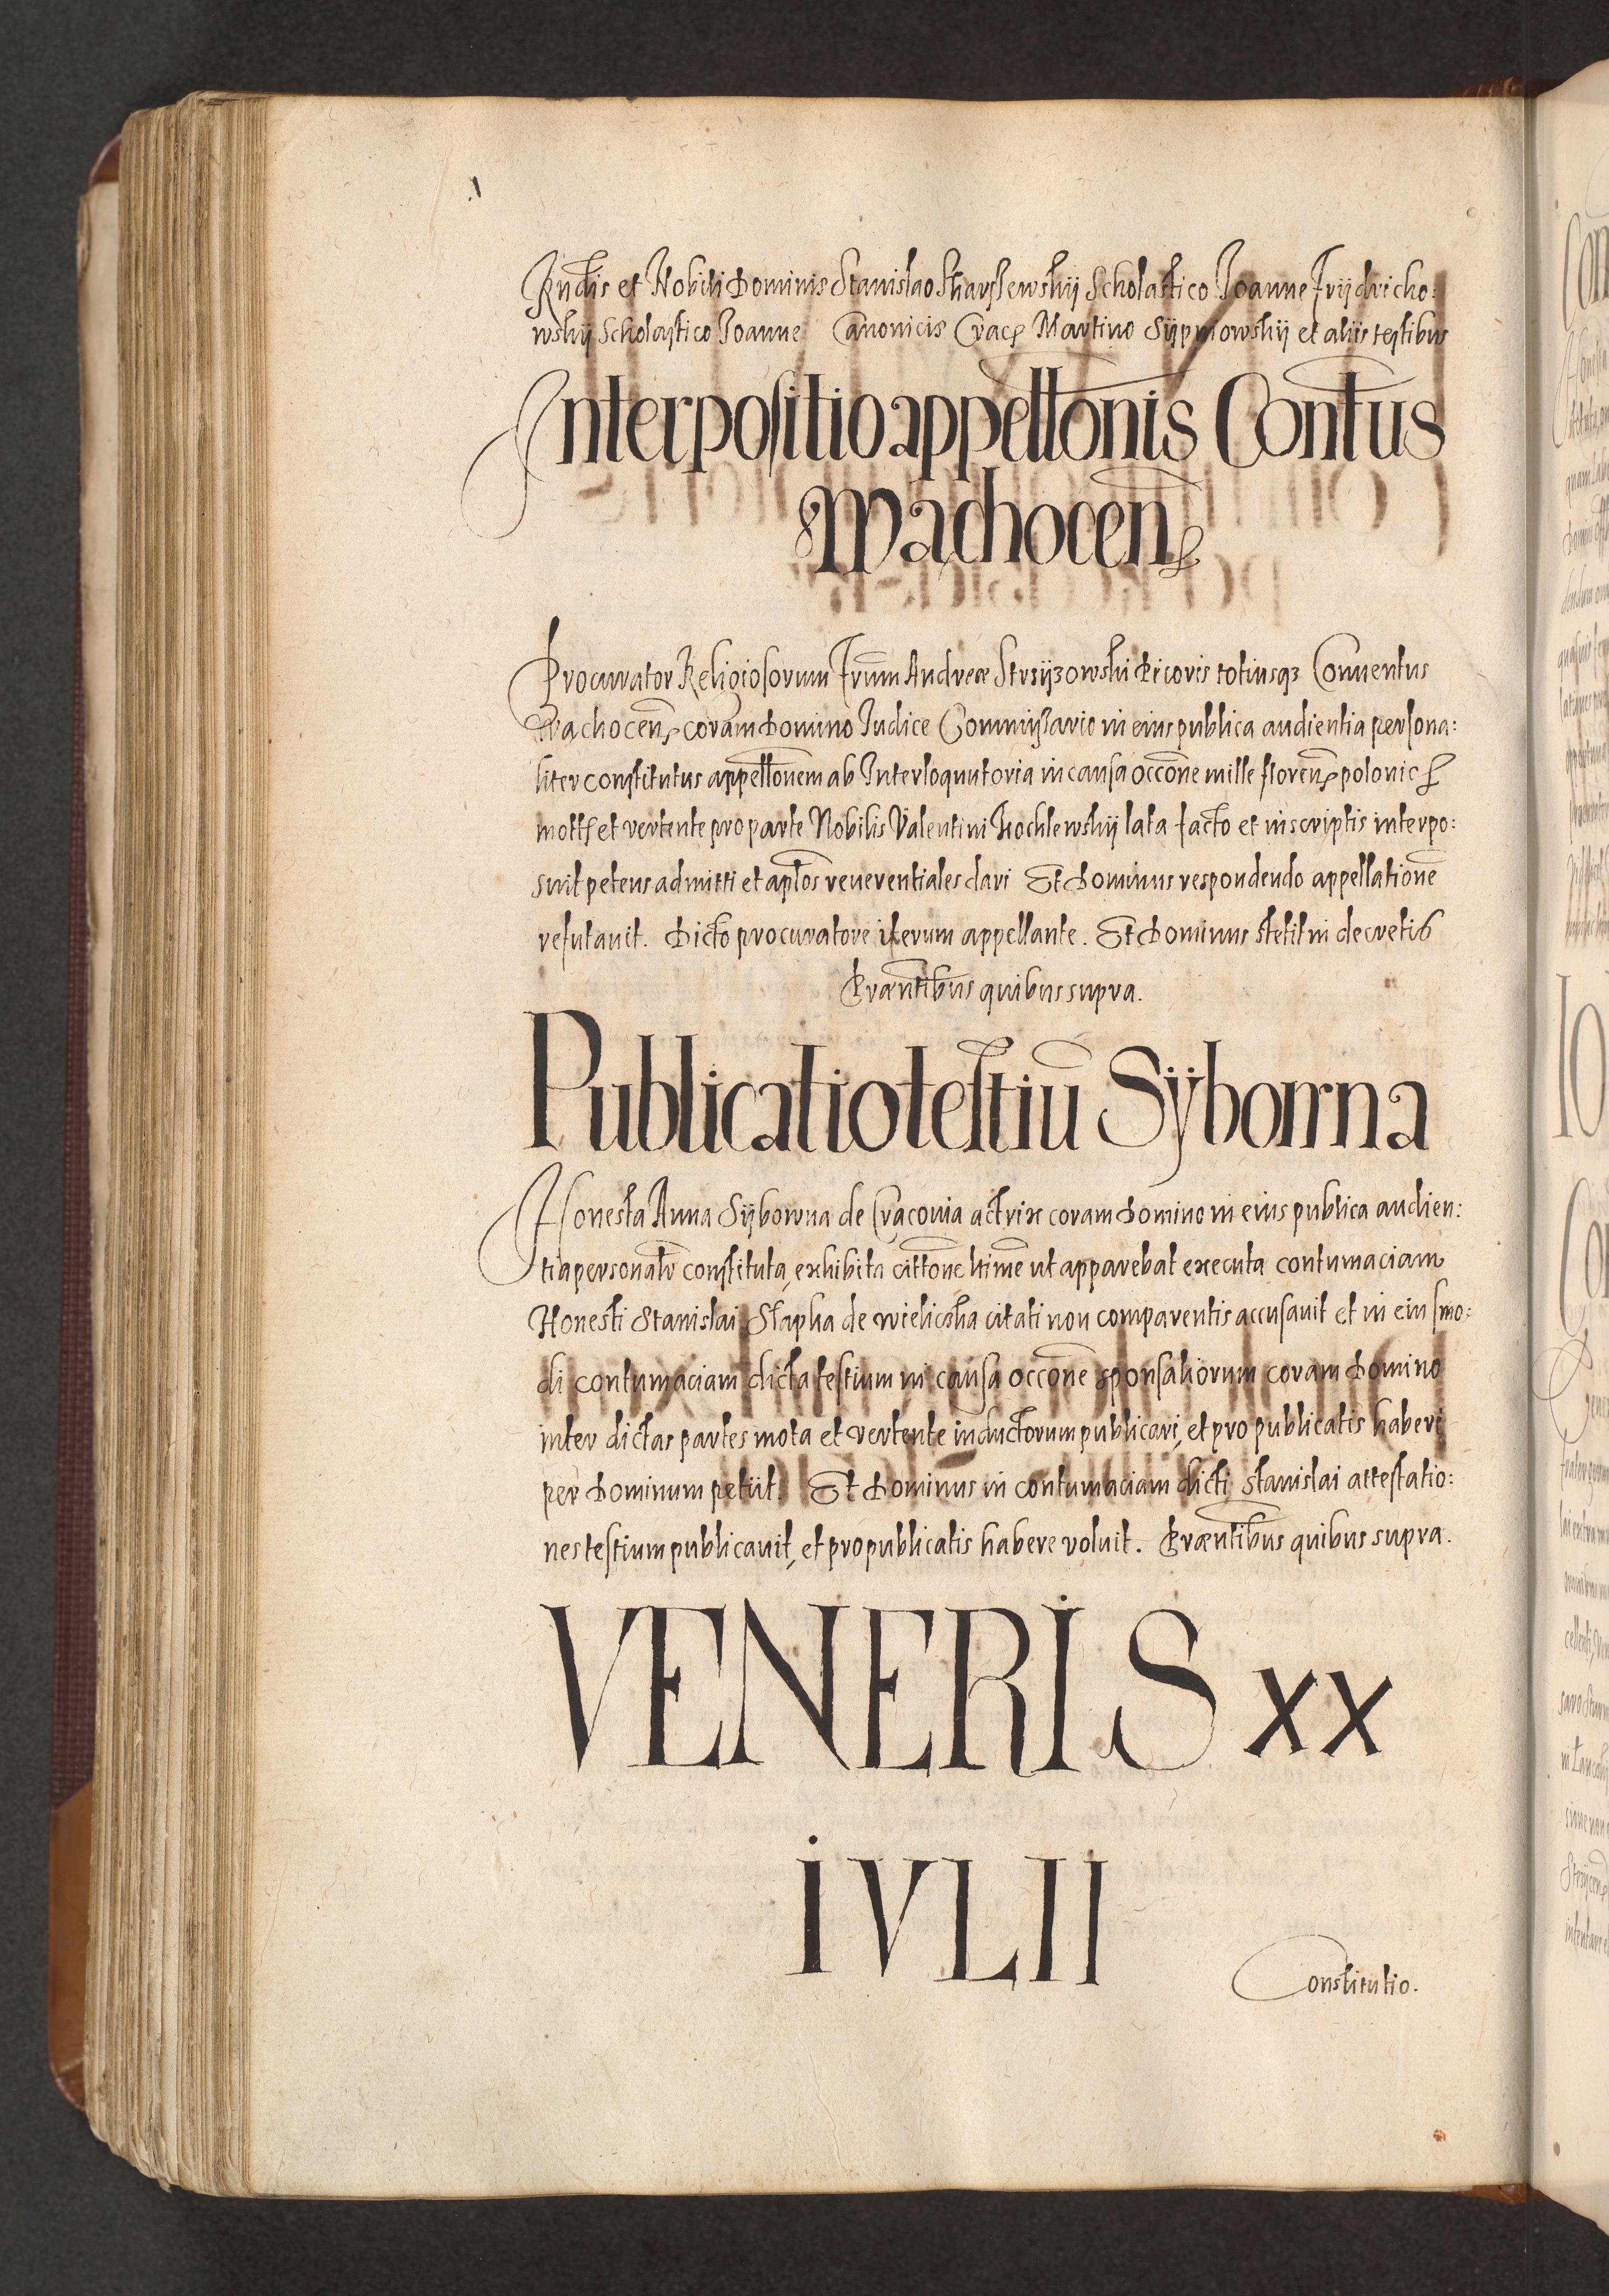 Rndis et Nobili Dominis Stanislao Skarssewskÿ Scholastico Joanne Frÿdricho:
wskÿ Scholastico Joanne Canonicis Crac Martino Sÿpniowskÿ et aliis testibus
Interpositio appelltonis Contus
Wachocen
Procurator Religiosorum Frum Andreæ Strÿzowski Prioris totiusqz Conuentus
Wachocen coram Domino Iudice Commissario in eius publica audientia persona:
liter constitutus appelltonem ab Interloqutoria in causa occone mille floren polonic
mott et vertente pro parte Nobilis Valentini Kochlewskÿ lata facto et in scriptis interpo:
suit petens admitti et aplos reuerentiales dari Et Dominus respondendo appellatione
refutauit. Dicto procuratore iterum appellante. Et Dominus stetit in decretis
Præntibus quibus supra.
Publicatio testiu Sÿborrna
Honesta Anna Sÿborrna de Cracouia actrix coram Domino in eius publica audien:
tia personalr constituta, exhibita cittone ltime ut apparebat executa contumaciam
Honesti Stanislai Slapka de wieliczka citati non comparentis accusauit et in eiusmo:
di contumaciam dicta testium in causa occone sponsaliorum coram Domino
inter dictas partes mota et vertente inductorum publicari, et pro publicatis haberi
per Dominum petiit. Et Dominus in contumaciam dicti Stanislai attestatio:
nes testium publicauit, et pro publicatis habere voluit. Præntibus quibus supra.
VENERIS XX
IVLII
Constitutio.